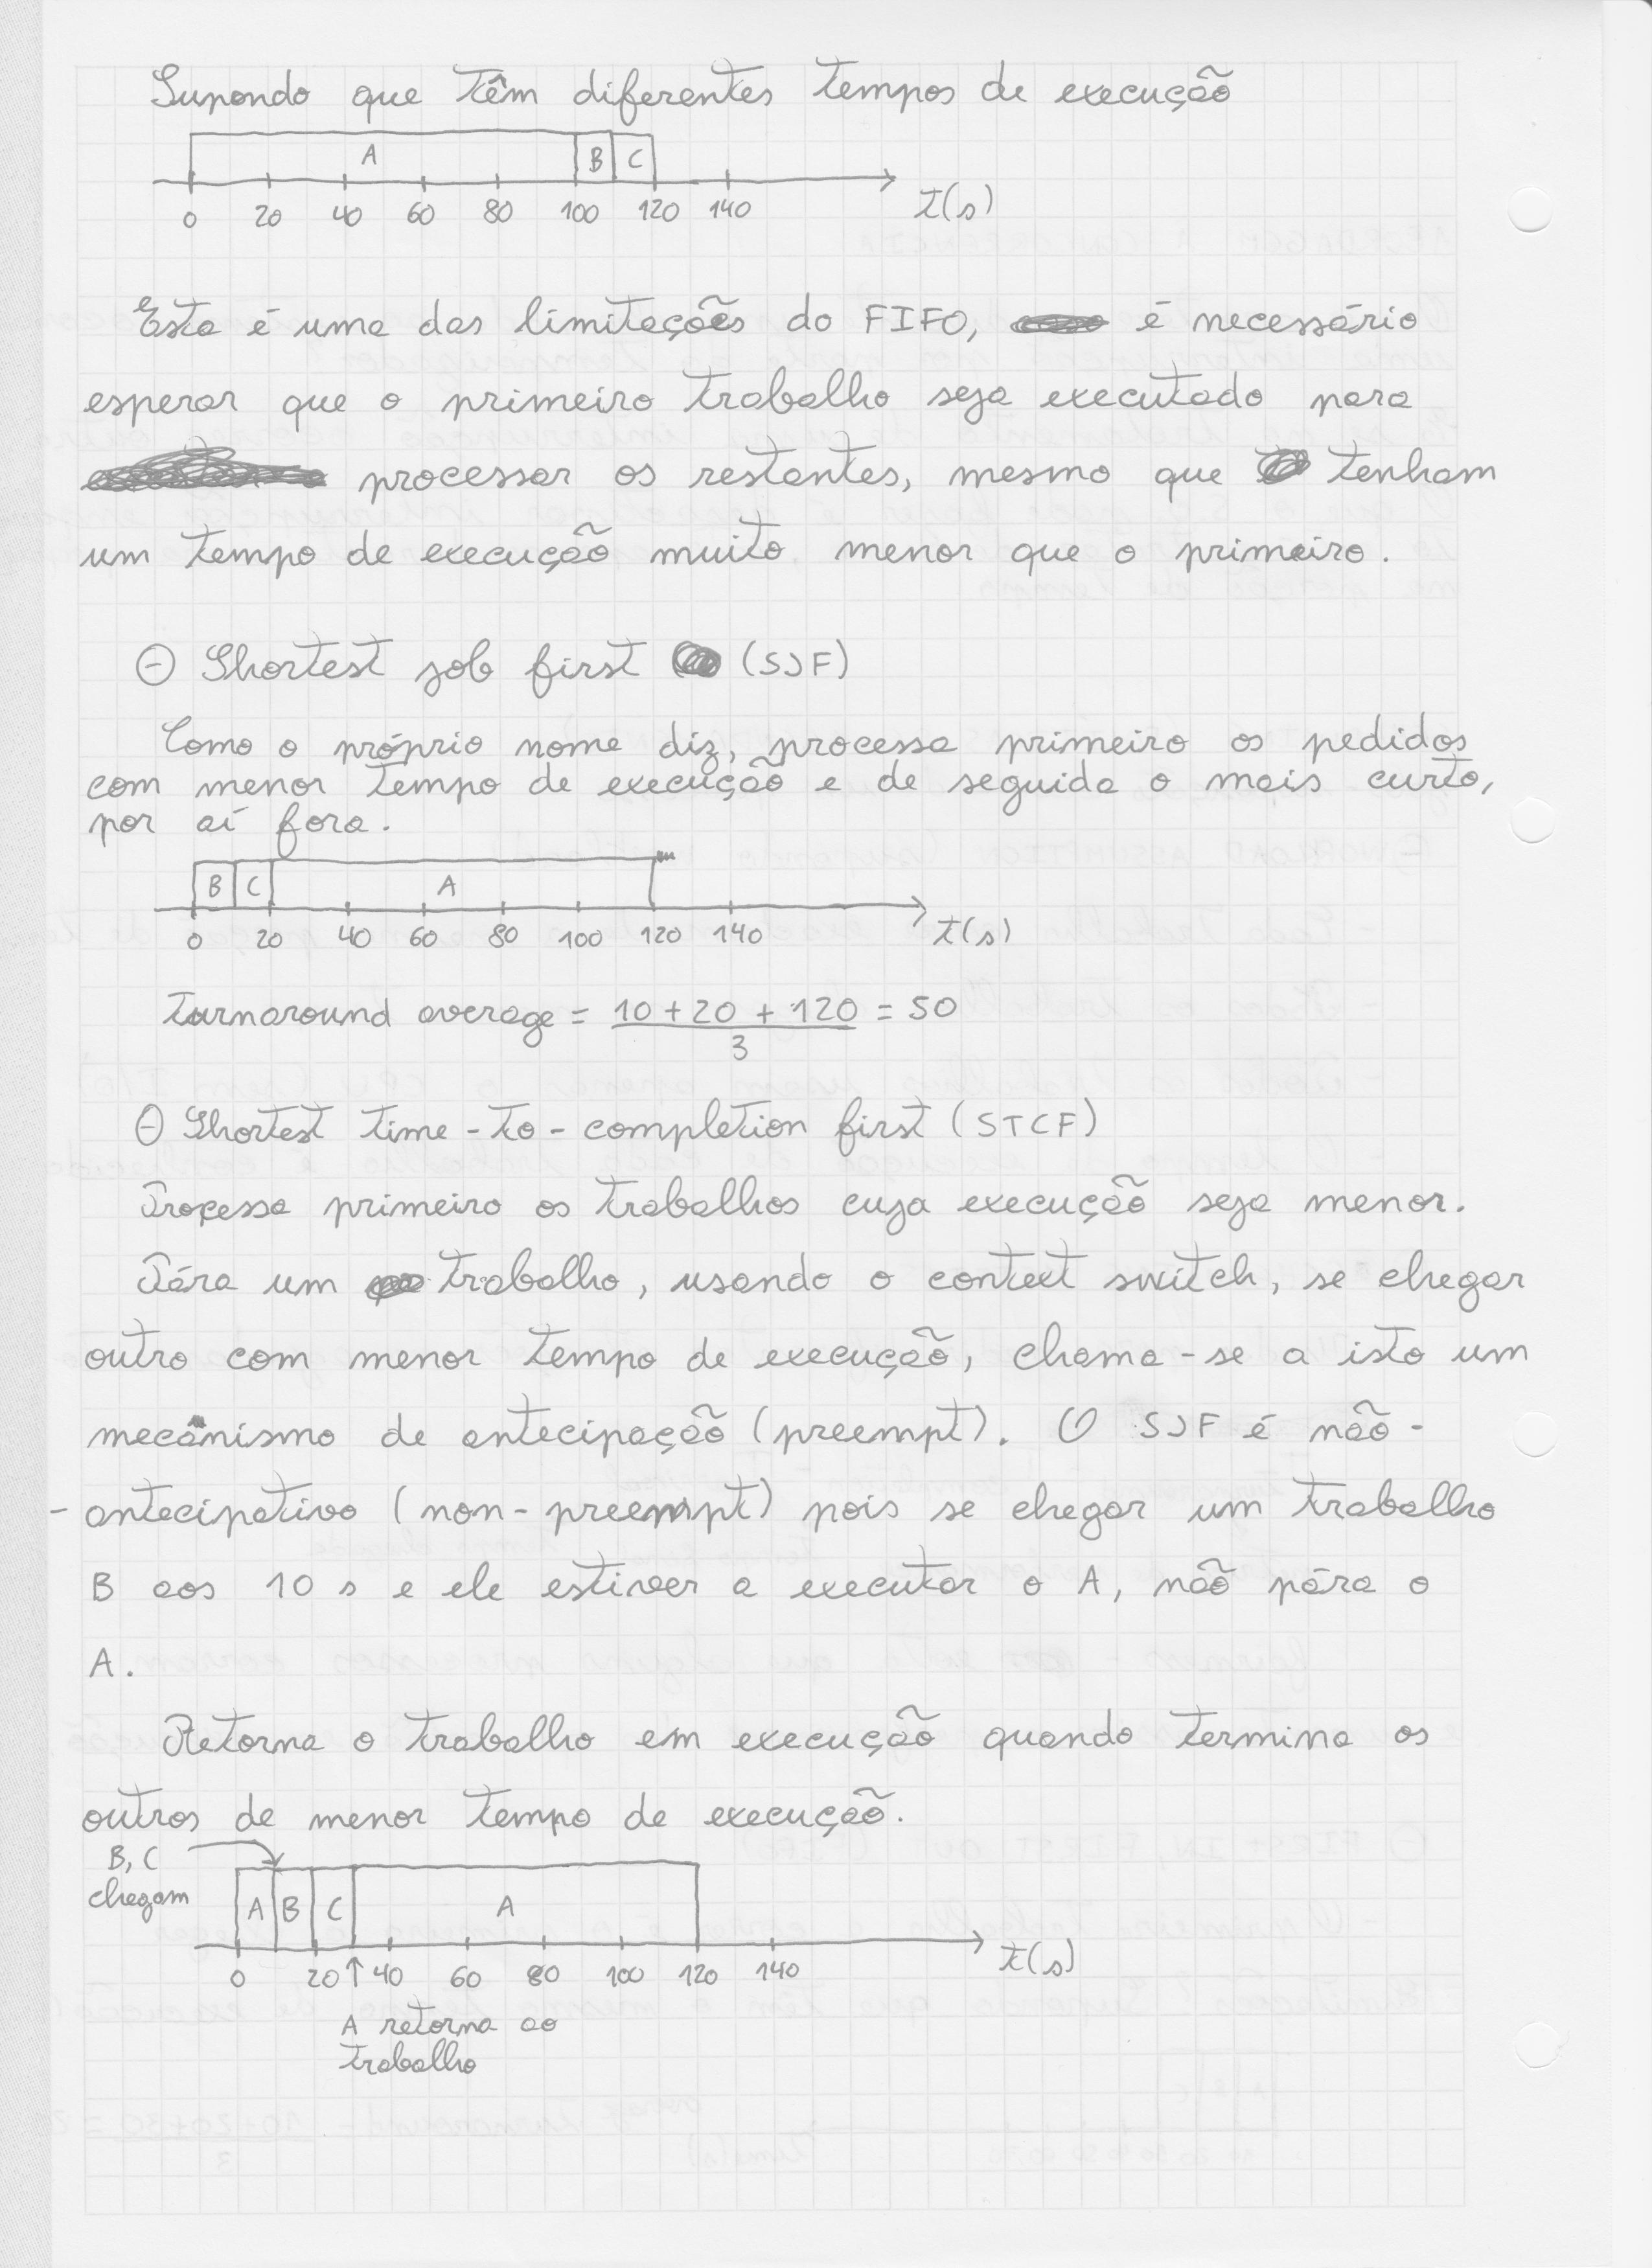 Supondo que têm diferentes tempos de execução
A B C
0 20 40 60 80 100 120 140 t(s)
Esta é uma das limitações do FIFO, é necessário
esperar que o primeiro trabalho seja executado para
processar os restantes, mesmo que tenham
um tempo de execução muito menor que o primeiro.
⊖ Shortest job first (SJF)
Como o próprio nome diz, processa primeiro os pedidos
com menor tempo de execução e de seguida o mais curto,
por aí fora.
B C A
0 20 40 60 80 100 120 140 t(s)
Turnaround average = 10 + 20 + 120 = 50
3
⊖ Shortest time-to-completion first (STCF)
Processa primeiro os trabalhos cuja execução seja menor.
Pára um trabalho, usando o context switch, se chegar
outro com menor tempo de execução, chama-se a isto um
mecanismo de antecipação (preempt). O SJF é não-
-antecipativo (non-preempt) pois se chegar um trabalho
B aos 10 s e ele estiver a executar o A, não pára o
A.
Retorna o trabalho em execução quando termina os
outros de menor tempo de execução.
B, C
chegam
A B C A
0 20 ↑ 40 60 80 100 120 140 t(s)
A retorna ao
trabalho